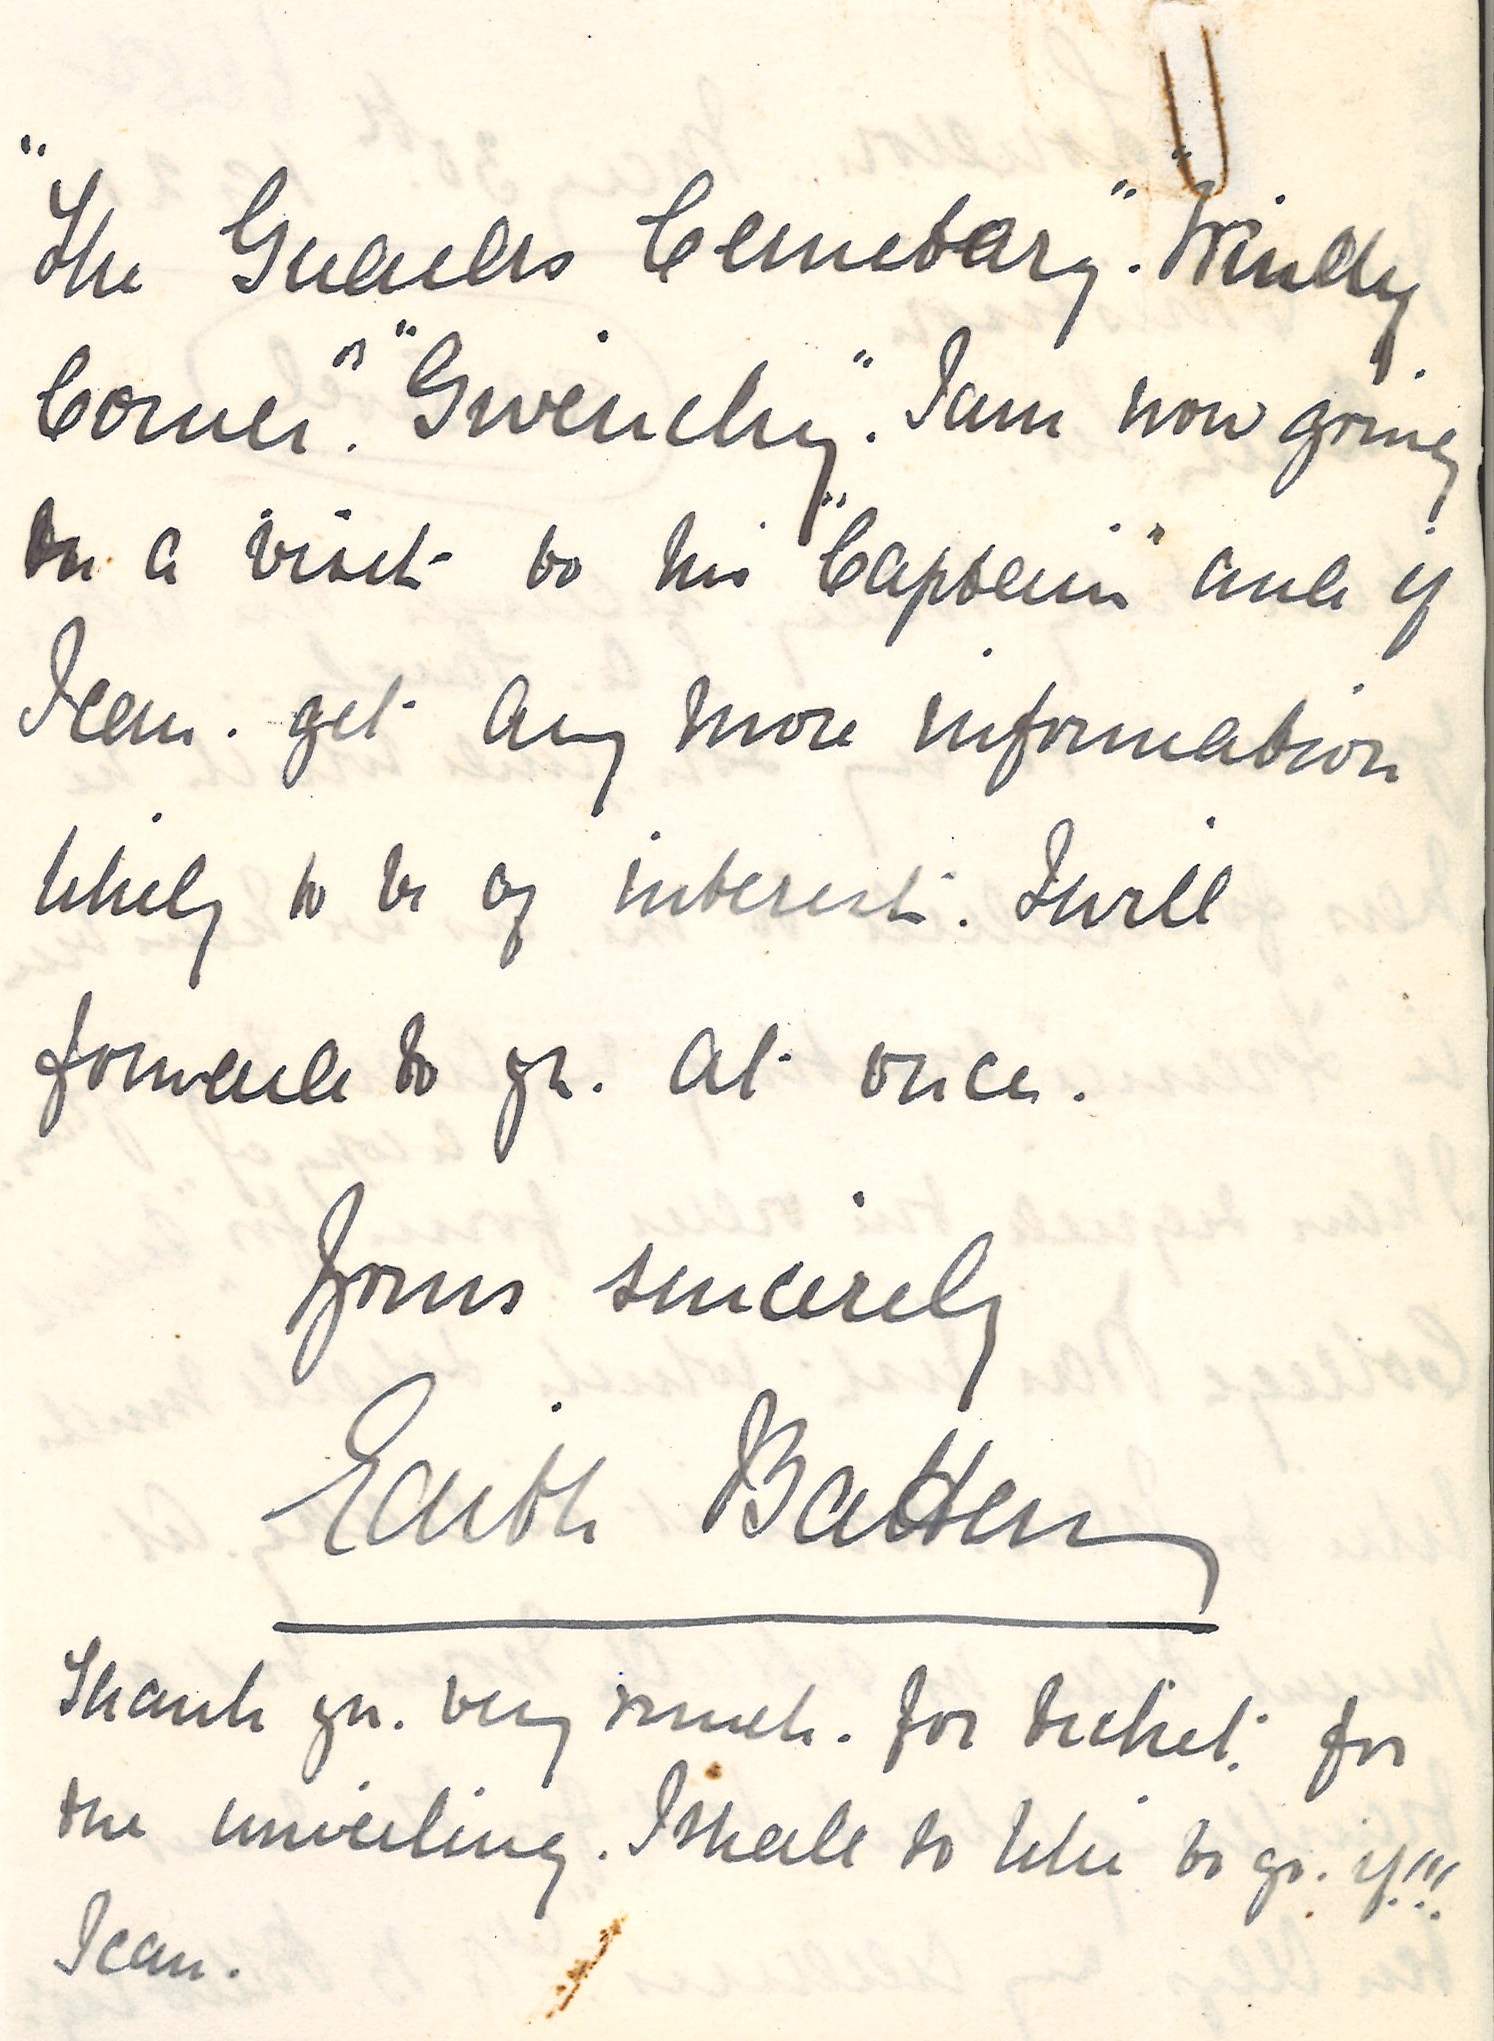 "The Guards Cemetary". "Windy
Corner". "Gwenchy". I am now going
on a visit to his "Captain" and if
I can. get any more information
likely to be of interest. I will
forward to yr. at once.
Yours sincerely
Edith Batten
Thank yr. very much. for ticket. for
the unveiling. I shall to like to go. if!!!
I can.